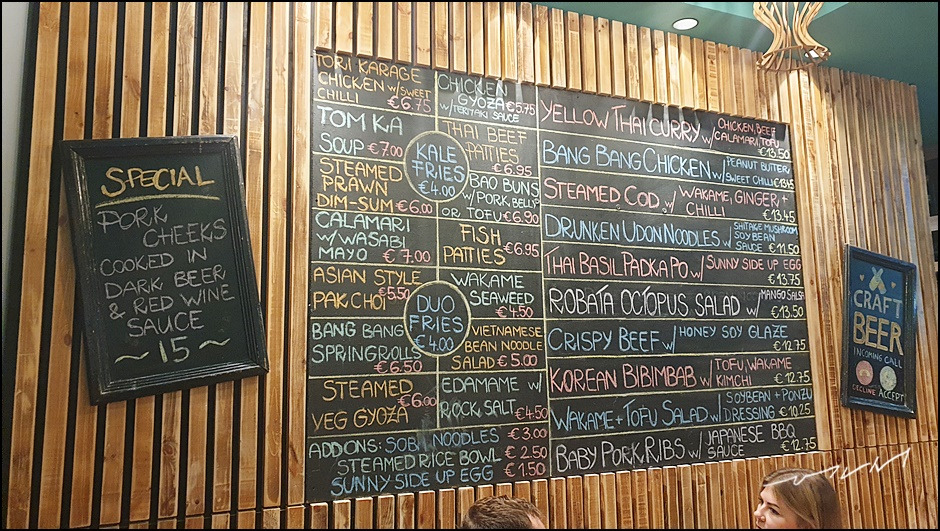 SPECIAL
PORK
CHEEKS
COOKED IN
DARK BEER
& RED WINE
SAUCE
~ 15 ~
TORI KARAGE
CHICKEN W/ SWEET
CHILLI €6.75
TOM KA
SOUP €7.00
STEAMED
PRAWN
DIM-SUM €6.00
CALAMARI
W/ WASABI
MAYO € 7.00
ASIAN STYLE
PAK CHOI €5.50
BANG BANG
SPRINGROLLS
€6.50
STEAMED
VEG GYOZA €6.00
KALE
FRIES
€4.00
DUO
FRIES
€4.00
CHICKEN
GYOZA €5.75
W/ TERIYAKI SAUCE
THAI BEEF
PATTIES
€6.95
BAO BUNS
W/ PORK BELLY
OR TOFU €6.90
FISH
PATTIES €6.95
WAKAME
SEAWEED
€4.50
VIETNAMESE
BEAN NOODLE
SALAD €5.00
EDAMAME W/
ROCK SALT €4.50
ADDONS: SOBA NOODLES € 3.00
STEAMED RICE BOWL € 2.50
SUNNY SIDE UP EGG € 1.50
YELLOW THAI CURRY W/ CHICKEN, BEEF
CALAMARI, TOFU
€13.50
BANG BANG CHICKEN W/ PEANUT BUTTER/
SWEET CHILLI €13.45
STEAMED COD W/ WAKAME, GINGER +
CHILLI €13.45
DRUNKEN UDON NOODLES W/ SHITAKE MUSHROOM
SOYBEAN
SAUCE €11.50
THAI BASIL PAD KA PO W/ SUNNY SIDE UP EGG
€13.75
ROBATA OCTOPUS SALAD W/ MANGO SALSA
€13.50
CRISPY BEEF W/ HONEY SOY GLAZE
€12.75
KOREAN BIBIMBAB W/ TOFU, WAKAME
KIMCHI € 12.75
WAKAME + TOFU SALAD W/ SOYBEAN + PONZU
DRESSING €10.25
BABY PORK RIBS W/ JAPANESE BBQ
SAUCE €12.75
CRAFT
BEER
INCOMING CALL
DECLINE ACCEPT